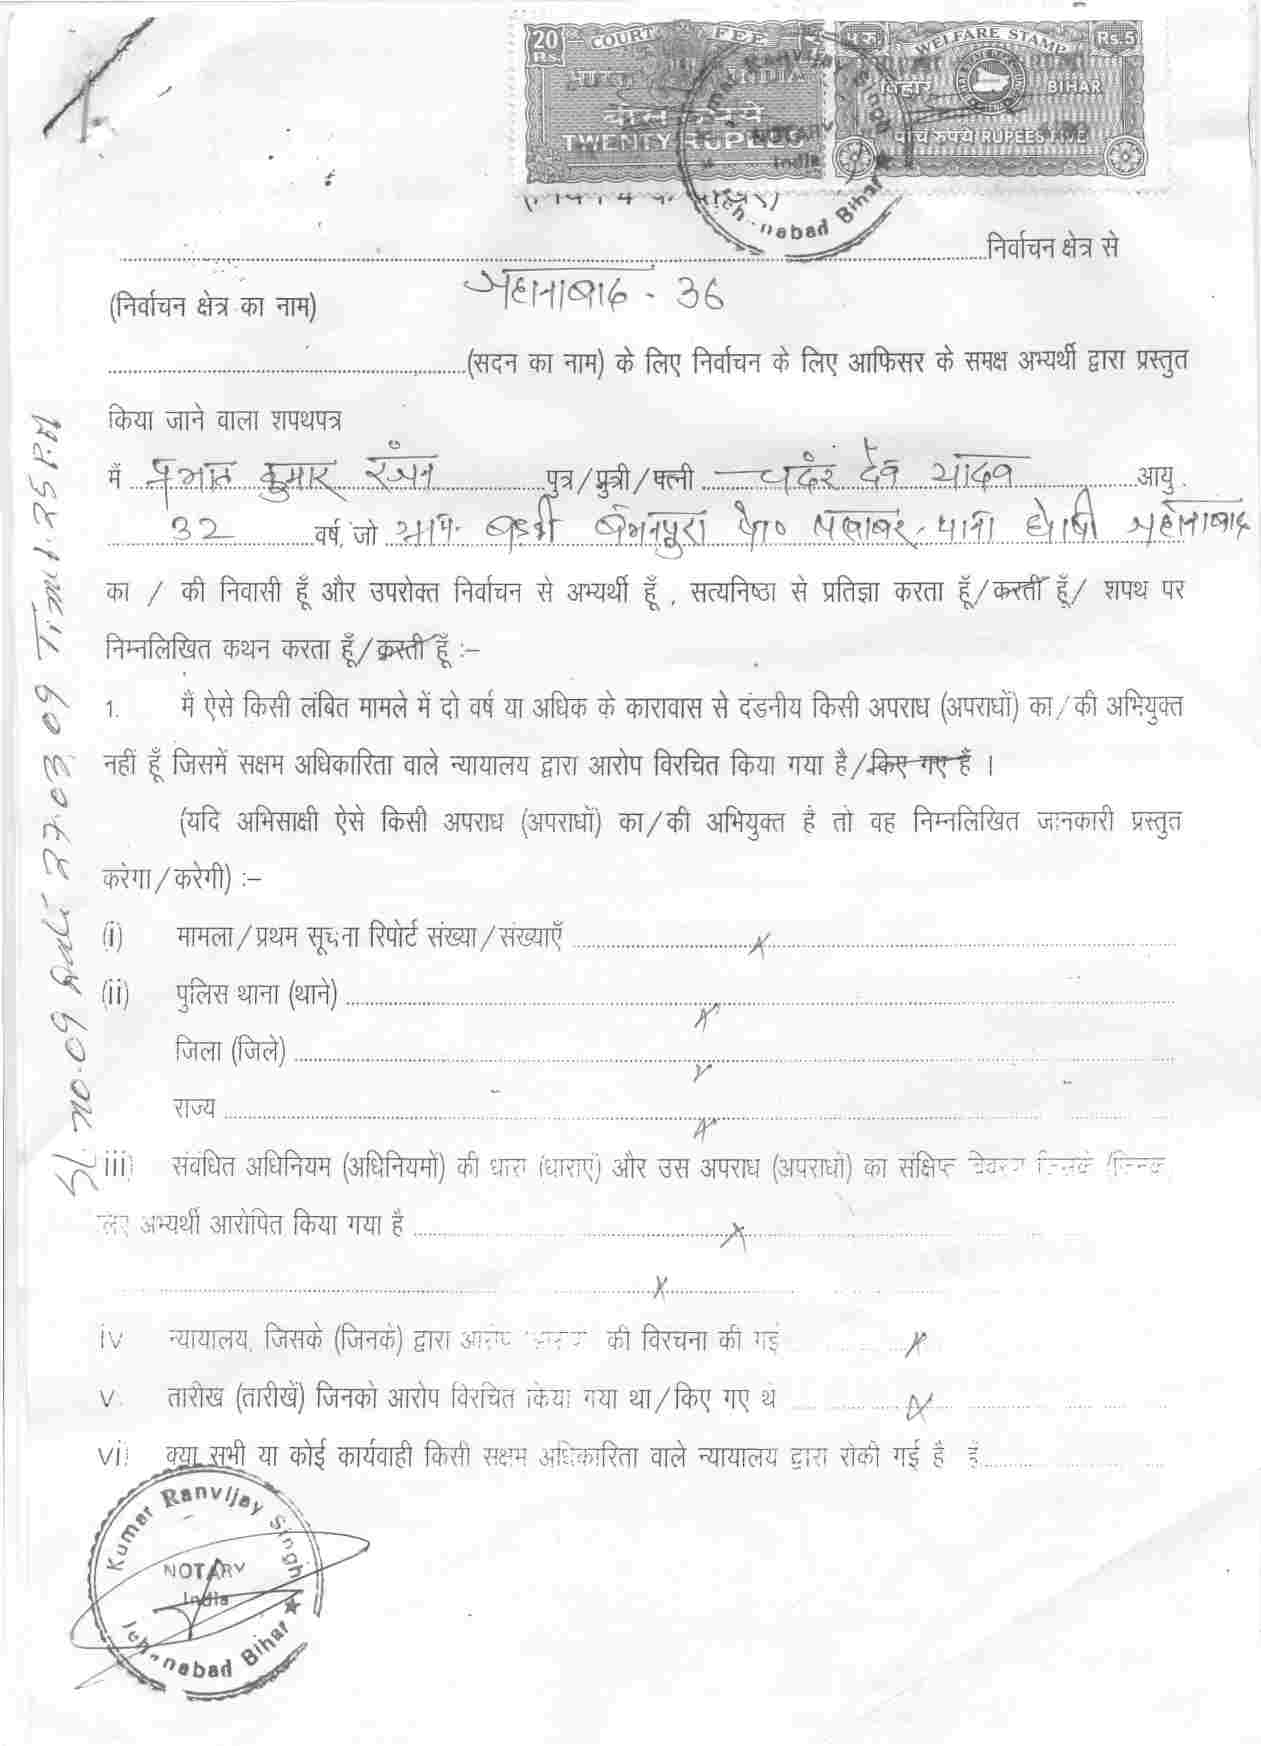 20 COURT FEE
Rs.
भारत INDIA
बीस रुपये
TWENTY RUPEES
WELFARE STAMP Rs.5
बिहार BIHAR
पांच रुपये RUPEES FIVE
Kumar Ranvijay Singh
NOTARY
India
Jehanabad Bihar
निर्वाचन क्षेत्र से
(निर्वाचन क्षेत्र का नाम) जहानाबाद - 36
(सदन का नाम) के लिए निर्वाचन के लिए आफिसर के समक्ष अभ्यर्थी द्वारा प्रस्तुत
किया जाने वाला शपथपत्र
मैं प्रभात कुमार रंजन पुत्र/पुत्री/पत्नी चदंर देव यादव आयु
32 वर्ष, जो ग्राम- थाना घोषी जहानाबाद
का / की निवासी हूँ और उपरोक्त निर्वाचन से अभ्यर्थी हूँ , सत्यनिष्ठा से प्रतिज्ञा करता हूँ/करती हूँ/ शपथ पर
निम्नलिखित कथन करता हूँ/करती हूँ :–
1. मैं ऐसे किसी लंबित मामले में दो वर्ष या अधिक के कारावास से दंडनीय किसी अपराध (अपराधों) का/की अभियुक्त
नहीं हूँ जिसमें सक्षम अधिकारिता वाले न्यायालय द्वारा आरोप विरचित किया गया है/किए गए हैं ।
(यदि अभिसाक्षी ऐसे किसी अपराध (अपराधों) का/की अभियुक्त है तो वह निम्नलिखित जानकारी प्रस्तुत
करेगा/करेगी) :–
(i) मामला/प्रथम सूचना रिपोर्ट संख्या/संख्याएँ x
(ii) पुलिस थाना (थाने) x
जिला (जिले) x
राज्य x
iii) संबंधित अधिनियम (अधिनियमों) की धारा (धाराएं) और उस अपराध (अपराधों) का संक्षिप्त विवरण जिसके (जिनके
लिए अभ्यर्थी आरोपित किया गया है x
x
iv न्यायालय, जिसके (जिनके) द्वारा आरोप की विरचना की गई x
v. तारीख (तारीखें) जिनको आरोप विरचित किया गया था/किए गए थे x
vi) क्या सभी या कोई कार्यवाही किसी सक्षम अधिकारिता वाले न्यायालय द्वारा रोकी गई है हैं
Kumar Ranvijay Singh
NOTARY
India
Jehanabad Bihar
Sl. no-09 Date 27.03.09 Time 1.25 P.M